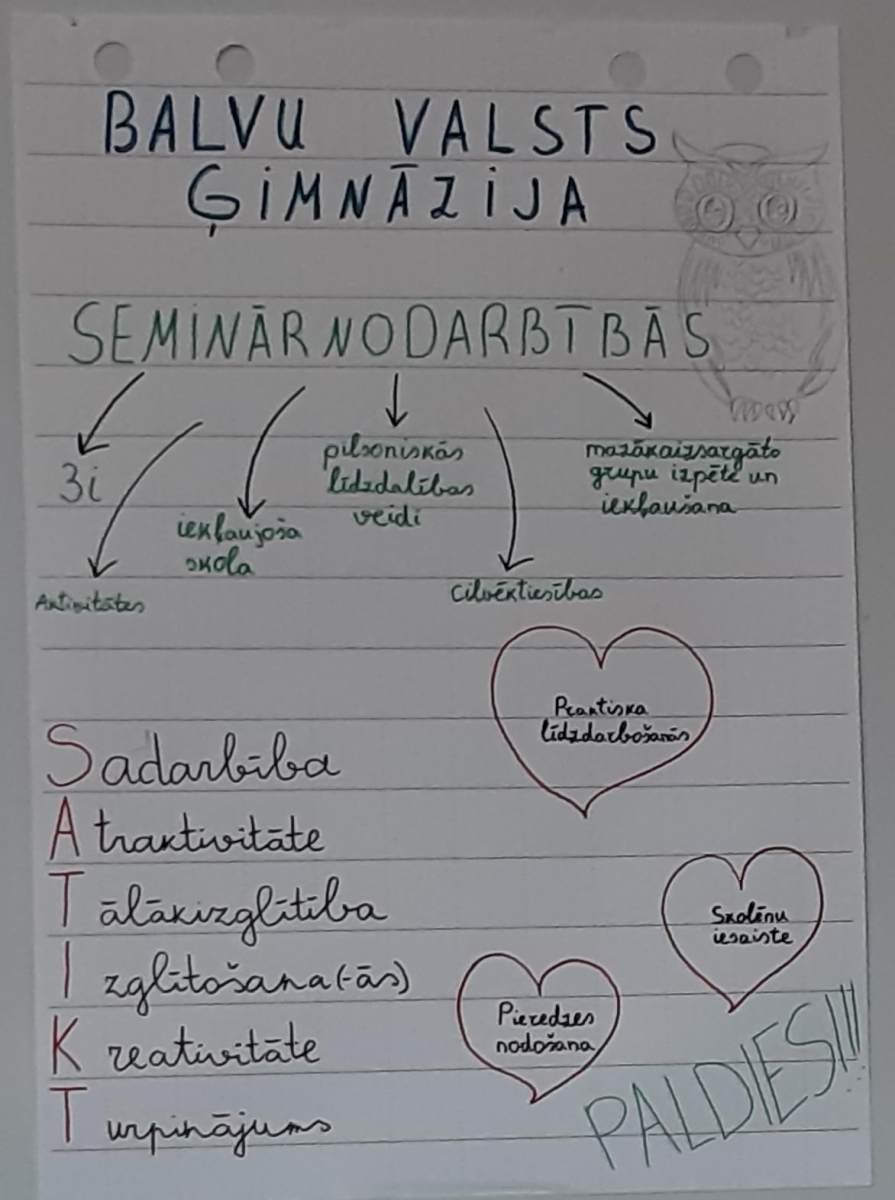 BALVU VALSTS
ĢIMNĀZIJA
SEMINĀRNODARBĪBĀS
3i
Aktivitātes
iekļaujoša
skola
pilsoniskās
līdzdalības
veidi
Cilvēktiesības
mazākaizsargāto
grupu izpēte un
iekļaušana
Praktiska
līdzdarbošanās
Sadarbība
Atraktivitāte
Tālākizglītība
Izglītošana(-ās)
Kreativitāte
Turpinājums
Skolēnu
iesaiste
Pieredzes
nodošana
PALDIES!!!